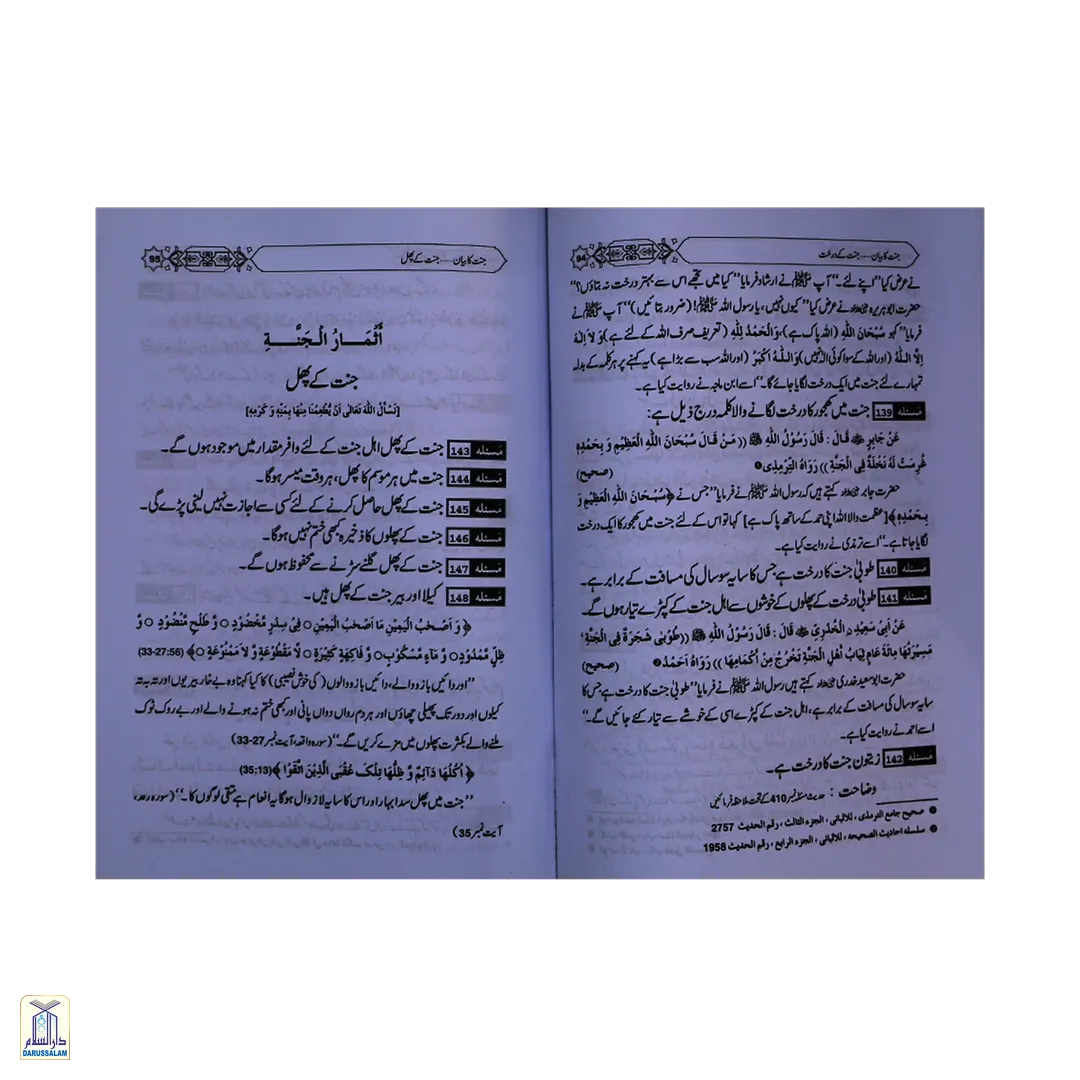 جنت کا بیان — جنت کے درخت
94
نے عرض کیا ’’اپنے لئے۔‘‘ آپ ﷺ نے ارشاد فرمایا ’’کیا میں تجھے اس سے بہتر درخت نہ بتاؤں؟‘‘
حضرت ابو ہریرہ نے عرض کیا ’’کیوں نہیں، یا رسول اللہ ﷺ! (ضرور بتائیں)‘‘ آپ ﷺ نے
فرمایا ’’کہو سُبْحَانَ اللّٰهِ (اللہ پاک ہے)، وَالْحَمْدُ لِلّٰهِ (تعریف صرف اللہ کے لئے ہے) وَ لاَ اِلٰهَ
اِلَّا اللّٰهُ (اور اللہ کے سوا کوئی الٰہ نہیں) وَاللّٰهُ اَكْبَرُ (اور اللہ سب سے بڑا ہے) یہ کہنے پر ہر کلمہ کے بدلہ
تمہارے لئے جنت میں ایک درخت لگایا جائے گا۔‘‘ اسے ابن ماجہ نے روایت کیا ہے۔
مَسئله 139 جنت میں کھجور کا درخت لگانے والا کلمہ درج ذیل ہے:
عَنْ جَابِرٍ قَالَ : قَالَ رَسُوْلُ اللّٰهِ ﷺ (( مَنْ قَالَ سُبْحَانَ اللّٰهِ الْعَظِيْمِ وَ بِحَمْدِهِ
غُرِسَتْ لَهُ نَخْلَةٌ فِي الْجَنَّةِ )) رَوَاهُ التِّرْمِذِى ❶ (صحیح)
حضرت جابر کہتے ہیں کہ رسول اللہ ﷺ نے فرمایا ’’جس نے ﴿سُبْحَانَ اللّٰهِ الْعَظِيْمِ وَ
بِحَمْدِهِ﴾ [عظمت والا اللہ اپنی حمد کے ساتھ پاک ہے] کہا تو اس کے لئے جنت میں کھجور کا ایک درخت
لگایا جاتا ہے۔‘‘ اسے ترمذی نے روایت کیا ہے۔
مَسئله 140 طوبیٰ جنت کا درخت ہے جس کا سایہ سو سال کی مسافت کے برابر ہے۔
مَسئله 141 طوبیٰ درخت کے پھلوں کے خوشوں سے اہل جنت کے کپڑے تیار ہوں گے۔
عَنْ اَبِىْ سَعِيْدِ نِ الْخُدْرِىِّ قَالَ : قَالَ رَسُوْلُ اللّٰهِ ﷺ (( طُوْبٰى شَجَرَةٌ فِى الْجَنَّةِ ‘
مَسِيْرَتُهَا مِائَةُ عَامٍ ثِيَابُ اَهْلِ الْجَنَّةِ تَخْرُجُ مِنْ اَكْمَامِهَا )) رَوَاهُ اَحْمَدُ ❷ (صحیح)
حضرت ابو سعید خدری کہتے ہیں رسول اللہ ﷺ نے فرمایا ’’طوبیٰ جنت کا درخت ہے جس کا
سایہ سو سال کی مسافت کے برابر ہے، اہل جنت کے کپڑے اسی کے خوشے سے تیار کئے جائیں گے۔‘‘
اسے احمد نے روایت کیا ہے۔
مَسئله 142 زیتون جنت کا درخت ہے۔
وضاحت : حدیث مسئلہ نمبر 410 کے تحت ملاحظہ فرمائیں
❶ صحیح جامع الترمذی ، للالبانی ، الجزء الثالث ، رقم الحدیث 2757
❷ سلسلہ احادیث الصحیحہ ، للالبانی ، الجزء الرابع ، رقم الحدیث 1958
جنت کا بیان — جنت کے پھل
95
أَثْمَارُ الْجَنَّةِ
جنت کے پھل
[نَسْأَلُ اللّٰهَ تَعَالٰى اَنْ يُّطْعِمَنَا مِنْهَا بِمَنِّهِ وَ كَرَمِهِ]
مَسئله 143 جنت کے پھل اہل جنت کے لئے وافر مقدار میں موجود ہوں گے۔
مَسئله 144 جنت میں ہر موسم کا پھل، ہر وقت میسر ہوگا۔
مَسئله 145 جنت کے پھل حاصل کرنے کے لئے کسی سے اجازت نہیں لینی پڑے گی۔
مَسئله 146 جنت کے پھلوں کا ذخیرہ کبھی ختم نہیں ہوگا۔
مَسئله 147 جنت کے پھل گلنے سڑنے سے محفوظ ہوں گے۔
مَسئله 148 کیلا اور بیر جنت کے پھل ہیں۔
﴿ وَ اَصْحٰبُ الْيَمِيْنِ مَا اَصْحٰبُ الْيَمِيْنِ ○ فِىْ سِدْرٍ مَّخْضُوْدٍ ○ وَّ طَلْحٍ مَّنْضُوْدٍ ○ وَّ
ظِلٍّ مَّمْدُوْدٍ ○ وَّ مَآءٍ مَّسْكُوْبٍ ○ وَّ فَاكِهَةٍ كَثِيْرَةٍ ○ لَّا مَقْطُوْعَةٍ وَّ لَا مَمْنُوْعَةٍ ○ ﴾ (33-27:56)
’’اور دائیں بازو والے، دائیں بازو والوں (کی خوش نصیبی) کا کیا کہنا وہ بے خار بیریوں اور تہ بہ تہ
کیلوں اور دور تک پھیلی چھاؤں اور ہر دم رواں دواں پانی اور کبھی ختم نہ ہونے والے اور بے روک ٹوک
ملنے والے بکثرت پھلوں میں مزے کریں گے۔‘‘ (سورہ واقعہ، آیت نمبر 27-33)
﴿ اُكُلُهَا دَآئِمٌ وَّ ظِلُّهَا تِلْكَ عُقْبَى الَّذِيْنَ اتَّقَوْا ﴾ (35:13)
’’جنت میں پھل سدا بہار اور اس کا سایہ لازوال ہوگا یہ انعام ہے متقی لوگوں کا۔‘‘ (سورہ رعد،
آیت نمبر 35)
دار السلام
DARUSSALAM